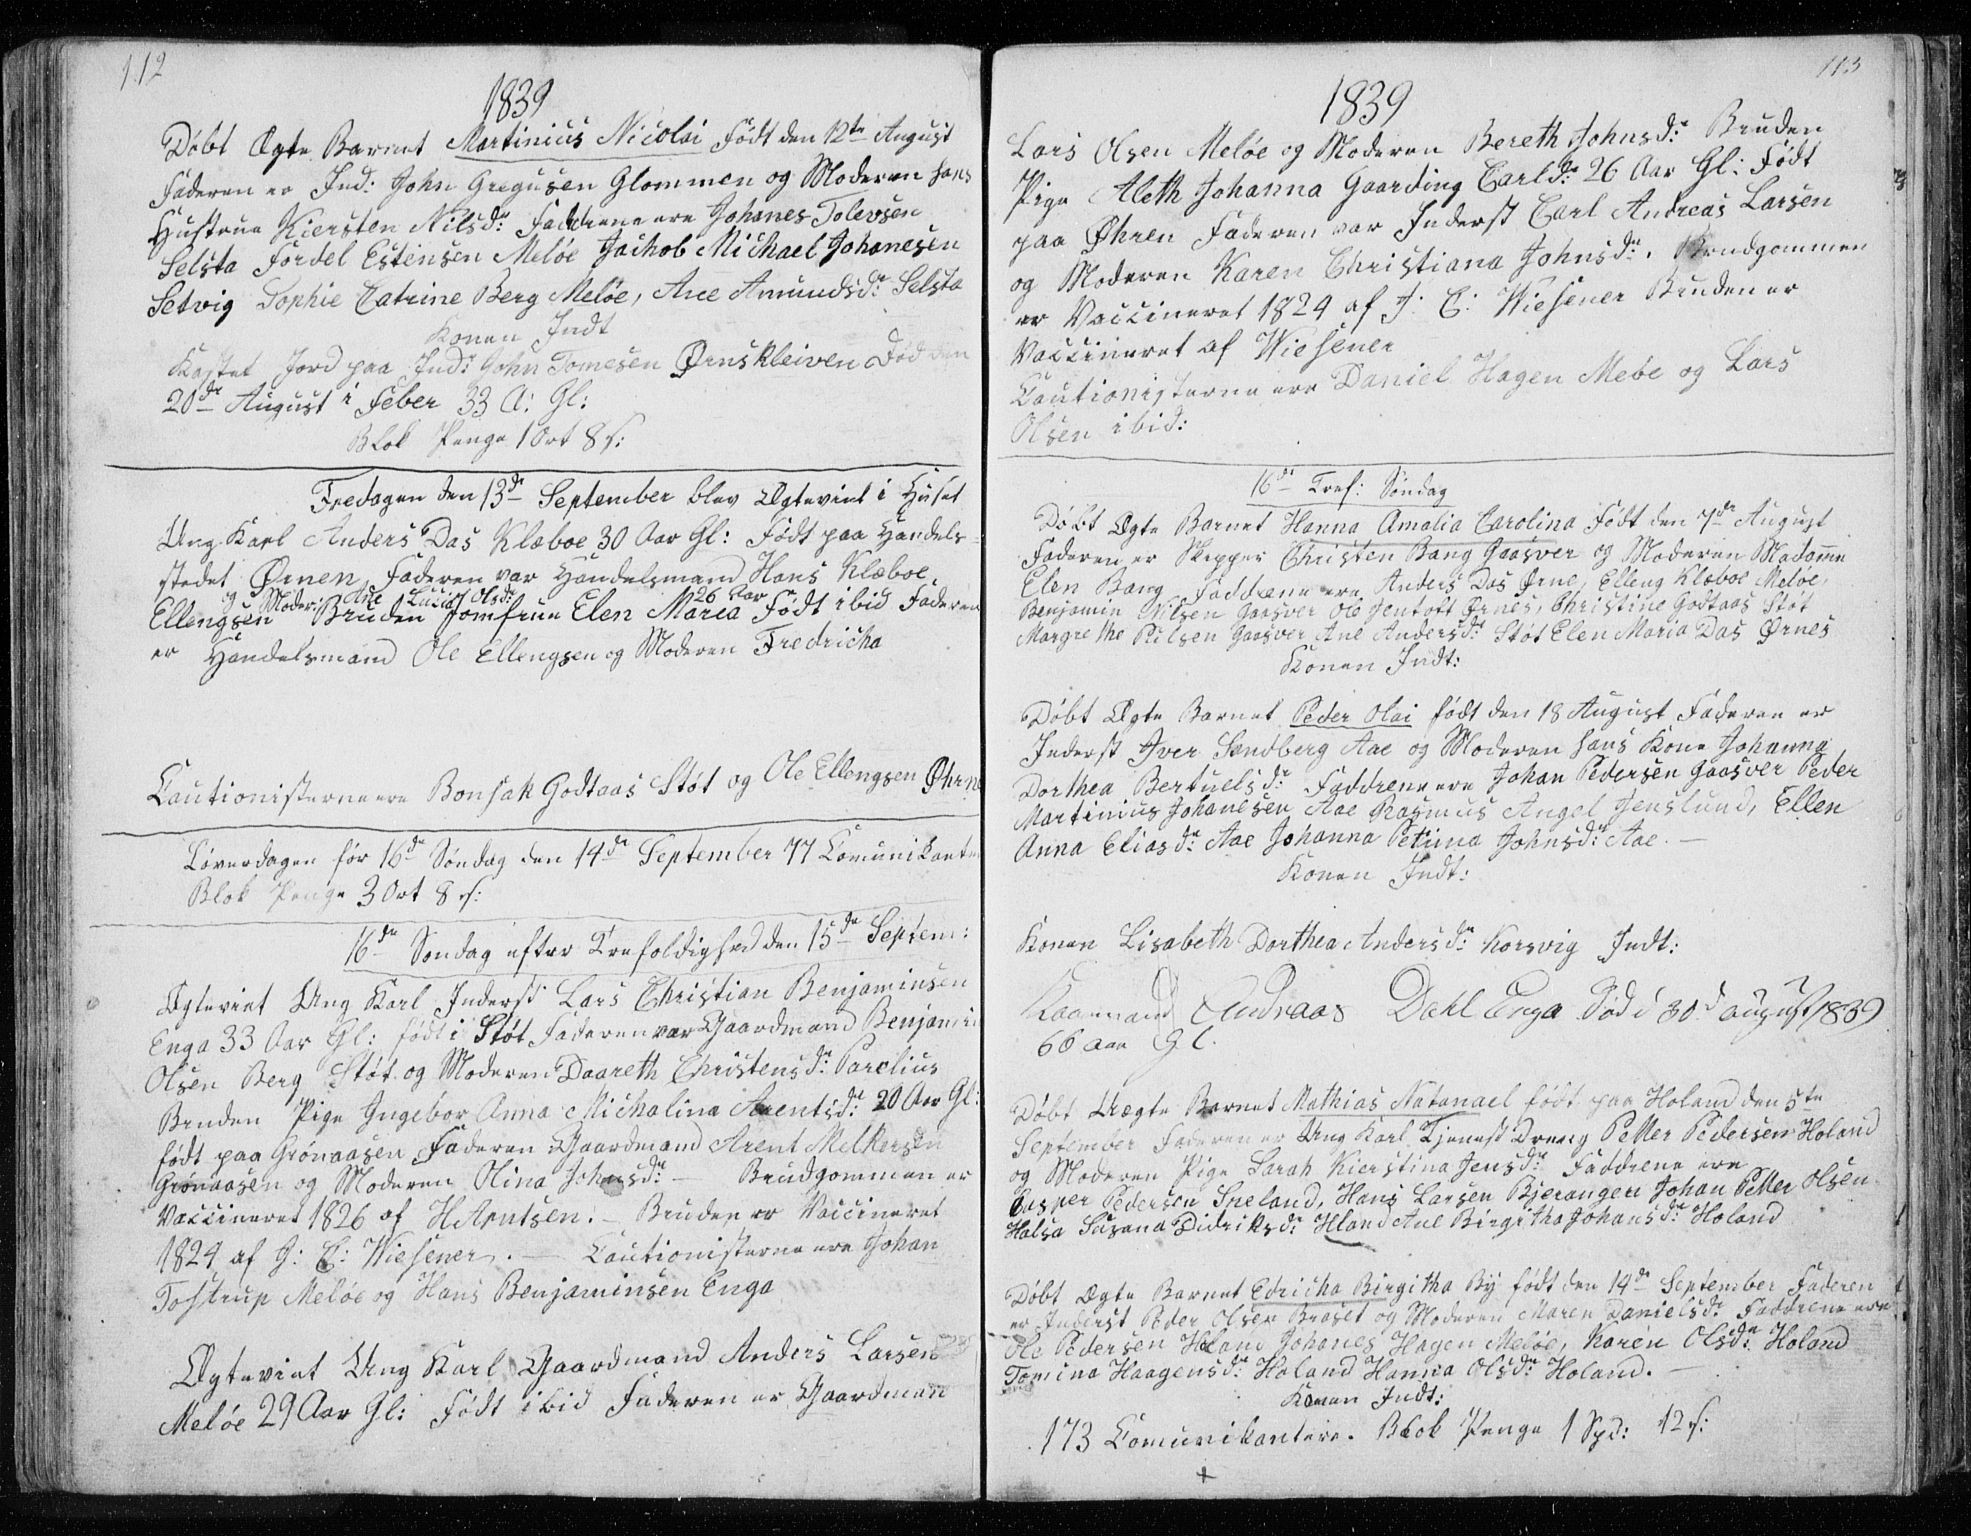 112
1839
Døbt Ægte Barnet Martinius Nicolai Født den 12te August
Faderen er Ind: John Gregusen Glommen og Moderen hans
Hustrue Kiersten Nilsd:r Faddrene ere Johanes Tolevsen
Selsta Fordel Estensen Meløe Jachob Michael Johanesen
Setvig Sophie Catrine Berg Meløe, Ane Amundsd:r Selsta
Konen Indt
Kastet Jord paa Ind: John Tomesen Ørnskleiven Død den
20de August i Feber 33 A: Gl:
Blok Penge 1 Ort 8 s:
Fredagen den 13de September blev Ægteviet i Huset
Ung Karl Anders Das Klæboe 30 Aar Gl: Født paa Handels-
stedet Ørnen, Faderen var Handelsmand Hans Klæboe
og Moder: Ane Lucia Olsd:r 26 Aar
Ellengsen Bruden Jomfrue Elen Maria Født ibid Faderen
er Handelsmand Ole Ellengsen og Moderen Fredricha
Cautionisterne ere Bonsak Godtaas Støt og Ole Ellengsen Øhrne
Løverdagen før 16de Søndag den 14de September 77 Comunikanter
Blok Penge 3 Ort 8 s:
16de Søndag efter Trefoldighed den 15de Septem:
Ægteviet Ung Karl Inderst Lars Christian Benjaminsen
Enga 33 Aar Gl: født i Støt Faderen var Gaardmand Benjamin
Olsen Berg Støt og Moderen Daareth Christensd:r Parelius
Bruden Pige Ingebor Anna Michalina Arentsd:r 20 Aar Gl:
født paa Grønaasen Faderen Gaardmand Arent Melkersen
Grønaasen og Moderen Olina Johansd:r — Brudgommen er
Vaccineret 1826 af H Arntsen. — Bruden er Vaccineret
1824 af J: C: Wiesener. — Cautionisterne ere Johan
Tostrup Meløe og Hans Benjaminsen Enga
Ægteviet Ung Karl Gaardmand Anders Larsen
Meløe 29 Aar Gl: Født ibid Faderen er Gaardman
113
1839
Lars Olsen Meløe og Moderen Bereth Johnsd:r Bruden
Pige Aleth Johanna Gaarding Carld:r 26 Aar Gl: Født
paa Øhren Faderen var Inderst Carl Andreas Larsen
og Moderen Karen Christiana Johnsd:r. Brudgommen
er Vaccineret 1824 af J: C: Wiesener Bruden er
Vaccineret af Wiesener
Cautionisterne ere Daniel Hagen Mebe og Lars
Olsen ibid:
16de Tref: Søndag
Døbt Ægte Barnet Hanna Amalia Carolina Født den 7de August
Faderen er Skipper Christen Bang Gaasver og Moderen Madame
Elen Bang Faddrene ere Anders Das Ørne, Elleng Klæboe Meløe,
Benjamin Nilsen Gaasver Ole Jentoft Ørnes, Christine Godtaas Støt
Margrethe Pulsen Gaasver Ane Andersd:r Støt Elen Maria Das Ørnes
Konen Indt:
Døbt Ægte Barnet Peder Olai født den 18 August Faderen er
Inderst Iver Sandberg Aae og Moderen hans Kone Johanna
Dorthea Bertuelsd:r Faddrene ere Johan Pedersen Gaasver Peder
Martinius Johanesen Aae Rasmus Angel Jenslund, Ellen
Anna Eliasd:r Aae Johanna Petrina Johnsd:r Aae. —
Konen Indt:
Konen Lisabeth Dorthea Andersd:r Korsvig Indt:
Kaarmand Andreas Dahl Enga Død d 30d august 1839
66 aar Gl.
Døbt Uægte Barnet Mathias Natanael født paa Holand den 5te
September Faderen er Ung Karl Tjenest Dreng Petter Pedersen Holand
og Moderen Pige Sarah Kierstina Jensd:r Faddrene ere
Casper Pedersen Speland, Hans Larsen Bjerangen Johan Petter Olsen
Halsa Susana Didriksd:r Hland Ane Birgitha Johansd:r Holand
Døbt Ægte Barnet Edricha Birgitha By født den 14de September Faderen
er Inderst Peder Olsen Braset og Moderen Maren Danielsd:r Faddrene ere
Ole Pedersen Holand Johanes Hagen Meløe, Karen Olsd:r Holand
Tomina Haagensd:r Holand Hanna Olsd:r Holand. —
Konen Indt:
173 Comunikantere. Blok Penge 1 Spd: 12 s: